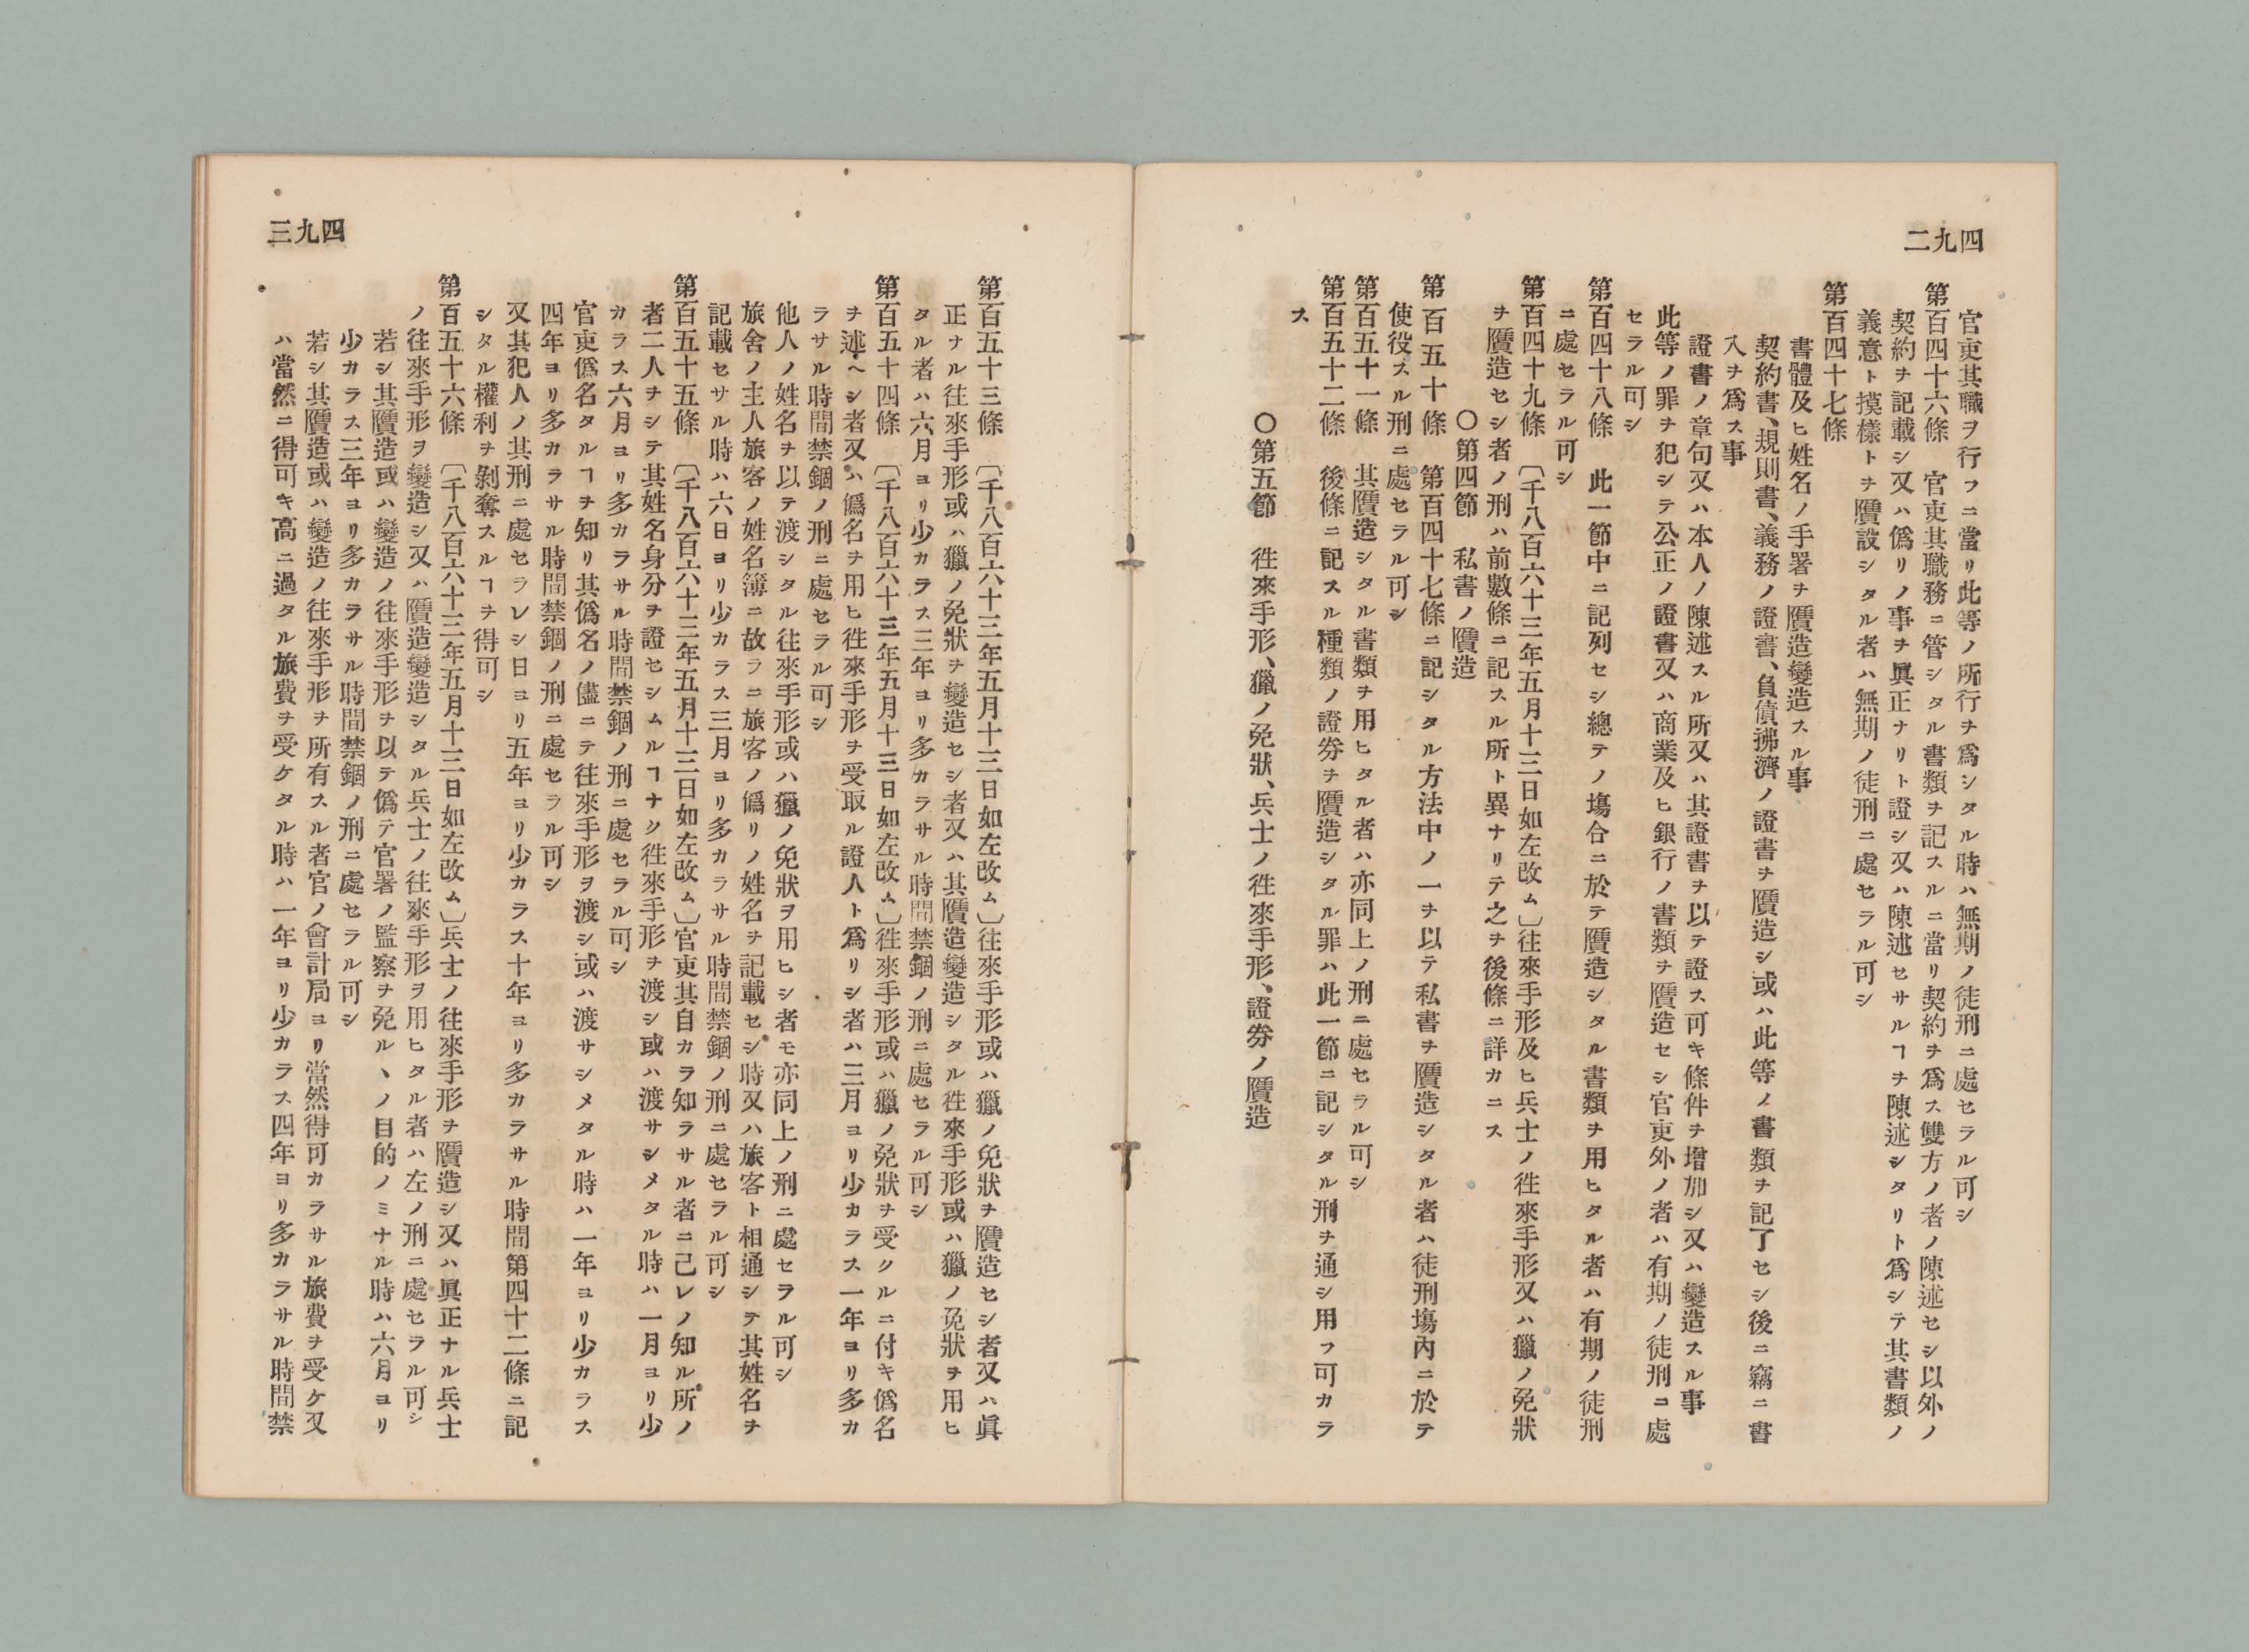 四九二
官吏其職ヲ行フニ當リ此等ノ所行ヲ爲シタル時ハ無期ノ徒刑ニ處セラル可シ
第百四十六條　官吏其職務ニ管シタル書類ヲ記スルニ當リ契約ヲ爲ス雙方ノ者ノ陳述セシ以外ノ
契約ヲ記載シ又ハ僞リノ事ヲ眞正ナリト證シ又ハ陳述セサルヿヲ陳述シタリト爲シテ其書類ノ
義意ト摸樣トヲ贋設シタル者ハ無期ノ徒刑ニ處セラル可シ
第百四十七條
書體及ヒ姓名ノ手署ヲ贋造變造スル事
契約書、規則書、義務ノ證書、負債拂濟ノ證書ヲ贋造シ或ハ此等ノ書類ヲ記了セシ後ニ竊ニ書
入ヲ爲ス事
證書ノ章句又ハ本人ノ陳述スル所又ハ其證書ヲ以テ證ス可キ條件ヲ增加シ又ハ變造スル事
此等ノ罪ヲ犯シテ公正ノ證書又ハ商業及ヒ銀行ノ書類ヲ贋造セシ官吏外ノ者ハ有期ノ徒刑コ處
セラル可シ
第百四十八條　此一節中ニ記列セシ總テノ塲合ニ於テ贋造シタル書類ヲ用ヒタル者ハ有期ノ徒刑
ニ處セラル可シ
第百四十九條　〔千八百六十三年五月十三日如左改ム〕往來手形及ヒ兵士ノ徃來手形又ハ獵ノ免狀
ヲ贋造セシ者ノ刑ハ前數條ニ記スル所ト異ナリテ之ヲ後條ニ詳カニス
〇第四節　私書ノ贋造
第百五十條　第百四十七條ニ記シタル方法中ノ一ヲ以テ私書ヲ贋造シタル者ハ徒刑塲內ニ於テ
使役スル刑ニ處セラル可シ
第百五十一條　其贋造シタル書類ヲ用ヒタル者ハ亦同上ノ刑ニ處セラル可シ
第百五十二條　後條ニ記スル種類ノ證劵ヲ贋造シタル罪ハ此一節ニ記シタル刑ヲ通シ用フ可カラ
ス
〇第五節　徃來手形、獵ノ免狀、兵士ノ徃來手形、證劵ノ贋造
四九三
第百五十三條　〔千八百六十三年五月十三日如左改ム〕往來手形或ハ獵ノ免狀ヲ贋造セシ者又ハ眞
正ナル往來手形或ハ獵ノ免狀ヲ變造セシ者又ハ其贋造變造シタル徃來手形或ハ獵ノ免狀ヲ用ヒ
タル者ハ六月ヨリ少カラス三年ヨリ多カラサル時間禁錮ノ刑ニ處セラル可シ
第百五十四條　〔千八百六十三年五月十三日如左改ム〕徃來手形或ハ獵ノ免狀ヲ受クルニ付キ僞名
ヲ述ヘシ者又ハ僞名ヲ用ヒ徃來手形ヲ受取ル證人ト爲リシ者ハ三月ヨリ少カラス一年ヨリ多カ
ラサル時間禁錮ノ刑ニ處セラル可シ
他人ノ姓名ヲ以テ渡シタル往來手形或ハ獵ノ免狀ヲ用ヒシ者モ亦同上ノ刑ニ處セラル可シ
旅舍ノ主人旅客ノ姓名簿ニ故ラニ旅客ノ僞リノ姓名ヲ記載セシ時又ハ旅客ト相通シテ其姓名ヲ
記載セサル時ハ六日ヨリ少カラス三月ヨリ多カラサル時間禁錮ノ刑ニ處セラル可シ
第百五十五條　〔千八百六十三年五月十三日如左改ム〕官吏其自カラ知ラサル者ニ己レノ知ル所ノ
者二人ヲシテ其姓名身分ヲ證セシムルヿナク徃來手形ヲ渡シ或ハ渡サシメタル時ハ一月ヨリ少
カラス六月ヨリ多カラサル時間禁錮ノ刑ニ處セラル可シ
官吏僞名タルヿヲ知リ其僞名ノ儘ニテ往來手形ヲ渡シ或ハ渡サシメタル時ハ一年ヨリ少カラス
四年ヨリ多カラサル時間禁錮ノ刑ニ處セラル可シ
又其犯人ノ其刑ニ處セラレシ日ヨリ五年ヨリ少カラス十年ヨリ多カラサル時間第四十二條ニ記
シタル權利ヲ剝奪スルヿヲ得可シ
第百五十六條　〔千八百六十三年五月十三日如左改ム〕兵士ノ往來手形ヲ贋造シ又ハ眞正ナル兵士
ノ往來手形ヲ變造シ又ハ贋造變造シタル兵士ノ往來手形ヲ用ヒタル者ハ左ノ刑ニ處セラル可シ
若シ其贋造或ハ變造ノ往來手形ヲ以テ僞テ官署ノ監察ヲ免ルヽノ目的ノミナル時ハ六月ヨリ
少カラス三年ヨリ多カラサル時間禁錮ノ刑ニ處セラル可シ
若シ其贋造或ハ變造ノ往來手形ヲ所有スル者官ノ會計局ヨリ當然得可カラサル旅費ヲ受ケ又
ハ當然ニ得可キ高ニ過タル旅費ヲ受ケタル時ハ一年ヨリ少カラス四年ヨリ多カラサル時間禁